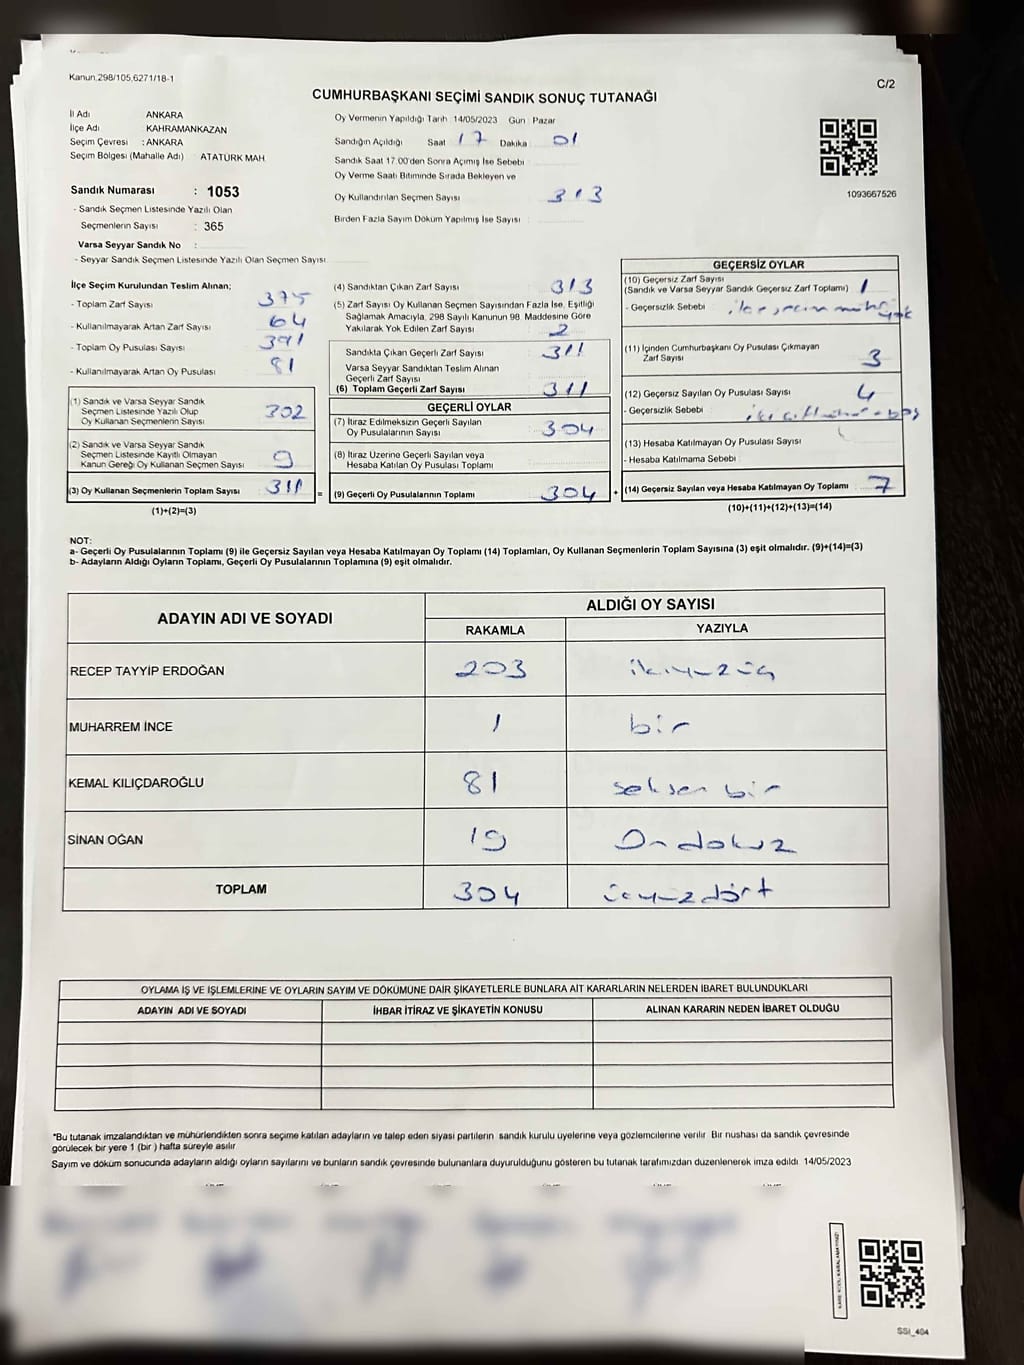 Kanun,298/105,6271/18-1
C/2
CUMHURBAŞKANI SEÇİMİ SANDIK SONUÇ TUTANAĞI
İl Adı ANKARA
İlçe Adı KAHRAMANKAZAN
Seçim Çevresi : ANKARA
Seçim Bölgesi (Mahalle Adı) ATATÜRK MAH.
Sandık Numarası : 1053
- Sandık Seçmen Listesinde Yazılı Olan
Seçmenlerin Sayısı : 365
Varsa Seyyar Sandık No :
- Seyyar Sandık Seçmen Listesinde Yazılı Olan Seçmen Sayısı
Oy Vermenin Yapıldığı Tarih 14/05/2023 Gün Pazar
Sandığın Açıldığı Saat 17 Dakika 01
Sandık Saat 17.00'den Sonra Açımış İse Sebebi
Oy Verme Saati Bitiminde Sırada Bekleyen ve
Oy Kullandırılan Seçmen Sayısı 313
Birden Fazla Sayım Döküm Yapılmış İse Sayısı
1093667526
İlçe Seçim Kurulundan Teslim Alınan;
- Toplam Zarf Sayısı 375
- Kullanılmayarak Artan Zarf Sayısı 64
- Toplam Oy Pusulası Sayısı 391
- Kullanılmayarak Artan Oy Pusulası 81
(1) Sandık ve Varsa Seyyar Sandık
Seçmen Listesinde Yazılı Olup
Oy Kullanan Seçmenlerin Sayısı 302
(2) Sandık ve Varsa Seyyar Sandık
Seçmen Listesinde Kayıtlı Olmayan
Kanun Gereği Oy Kullanan Seçmen Sayısı 9
(3) Oy Kullanan Seçmenlerin Toplam Sayısı 311 =
(1)+(2)=(3)
(4) Sandıktan Çıkan Zarf Sayısı 313
(5) Zarf Sayısı Oy Kullanan Seçmen Sayısından Fazla İse, Eşitliği
Sağlamak Amacıyla, 298 Sayılı Kanunun 98. Maddesine Göre
Yakılarak Yok Edilen Zarf Sayısı 2
Sandıkta Çıkan Geçerli Zarf Sayısı 311
Varsa Seyyar Sandıktan Teslim Alınan
Geçerli Zarf Sayısı
(6) Toplam Geçerli Zarf Sayısı 311
GEÇERLİ OYLAR
(7) İtiraz Edilmeksizin Geçerli Sayılan
Oy Pusulalarının Sayısı 304
(8) İtiraz Üzerine Geçerli Sayılan veya
Hesaba Katılan Oy Pusulası Toplamı
(9) Geçerli Oy Pusulalarının Toplamı 304 +
GEÇERSİZ OYLAR
(10) Geçersiz Zarf Sayısı
(Sandık ve Varsa Seyyar Sandık Geçersiz Zarf Toplamı) 1
- Geçersizlik Sebebi
(11) İçinden Cumhurbaşkanı Oy Pusulası Çıkmayan
Zarf Sayısı 3
(12) Geçersiz Sayılan Oy Pusulası Sayısı 4
- Geçersizlik Sebebi
(13) Hesaba Katılmayan Oy Pusulası Sayısı
- Hesaba Katılmama Sebebi
(14) Geçersiz Sayılan veya Hesaba Katılmayan Oy Toplamı 7
(10)+(11)+(12)+(13)=(14)
NOT:
a- Geçerli Oy Pusulalarının Toplamı (9) ile Geçersiz Sayılan veya Hesaba Katılmayan Oy Toplamı (14) Toplamları, Oy Kullanan Seçmenlerin Toplam Sayısına (3) eşit olmalıdır. (9)+(14)=(3)
b- Adayların Aldığı Oyların Toplamı, Geçerli Oy Pusulalarının Toplamına (9) eşit olmalıdır.
ADAYIN ADI VE SOYADI ALDIĞI OY SAYISI
RAKAMLA YAZIYLA
RECEP TAYYİP ERDOĞAN 203 ikiyüzüç
MUHARREM İNCE 1 bir
KEMAL KILIÇDAROĞLU 81 seksen bir
SİNAN OĞAN 19 Ondokuz
TOPLAM 304 üçyüzdört
OYLAMA İŞ VE İŞLEMLERİNE VE OYLARIN SAYIM VE DÖKÜMÜNE DAİR ŞİKAYETLERLE BUNLARA AİT KARARLARIN NELERDEN İBARET BULUNDUKLARI
ADAYIN ADI VE SOYADI İHBAR İTİRAZ VE ŞİKAYETİN KONUSU ALINAN KARARIN NEDEN İBARET OLDUĞU
*Bu tutanak imzalandıktan ve mühürlendikten sonra seçime katılan adayların ve talep eden siyasi partilerin sandık kurulu üyelerine veya gözlemcilerine verilir. Bir nushası da sandık çevresinde
görülecek bir yere 1 (bir ) hafta süreyle asılır
Sayım ve döküm sonucunda adayların aldığı oyların sayılarını ve bunların sandık çevresinde bulunanlara duyurulduğunu gösteren bu tutanak tarafımızdan düzenlenerek imza edildi 14/05/2023
SSI_404